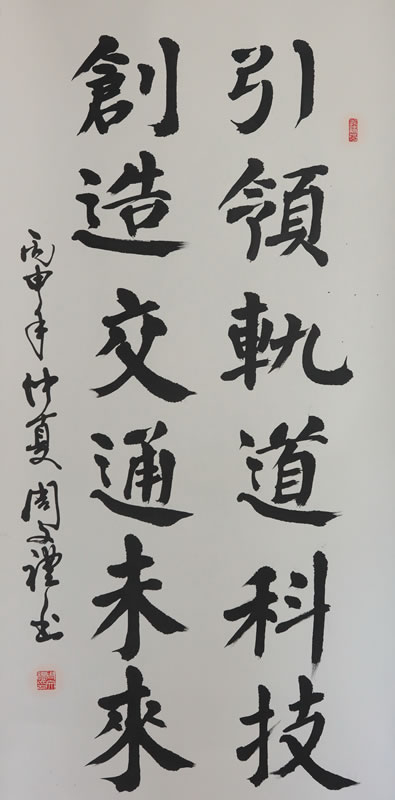 引領軌道科技
創造交通未來
丙申年仲夏周文禮書